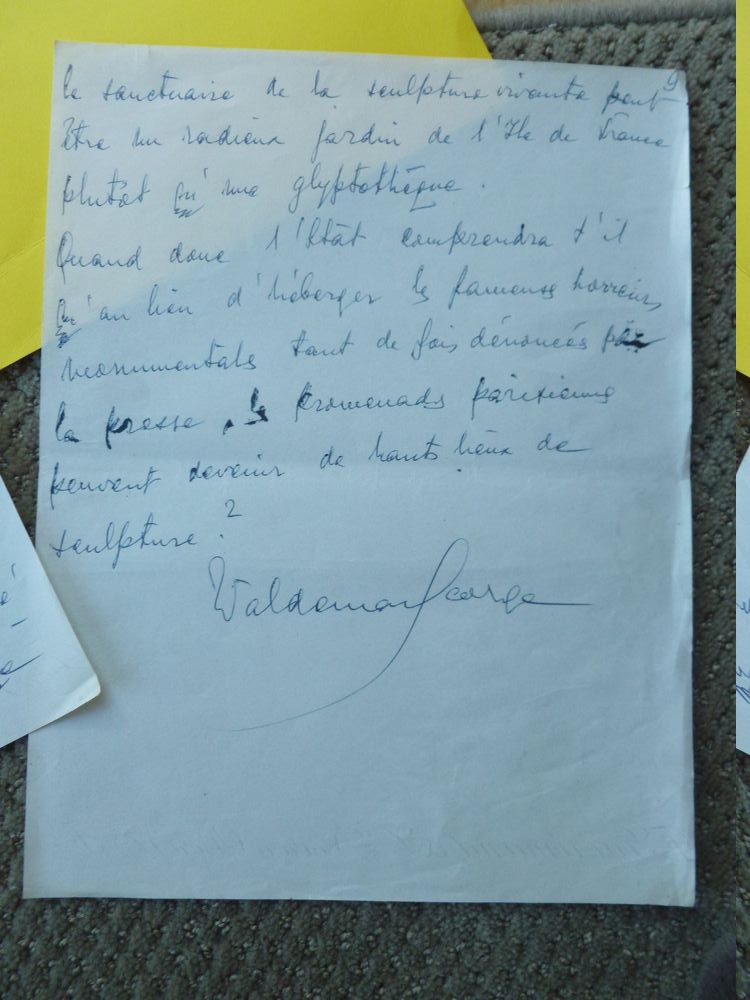 9
le sanctuaire de la sculpture vivante peut
être un radieux jardin de l'Ile de France
plutôt qu'une glyptothèque.
Quand donc l'Etât comprendra t'il
qu'au lieu d'héberger les fameuses horreurs
monumentales tant de fois dénoncées par
la presse, les promenades parisiennes
peuvent devenir de hauts lieux de
sculpture ?
Waldemar George